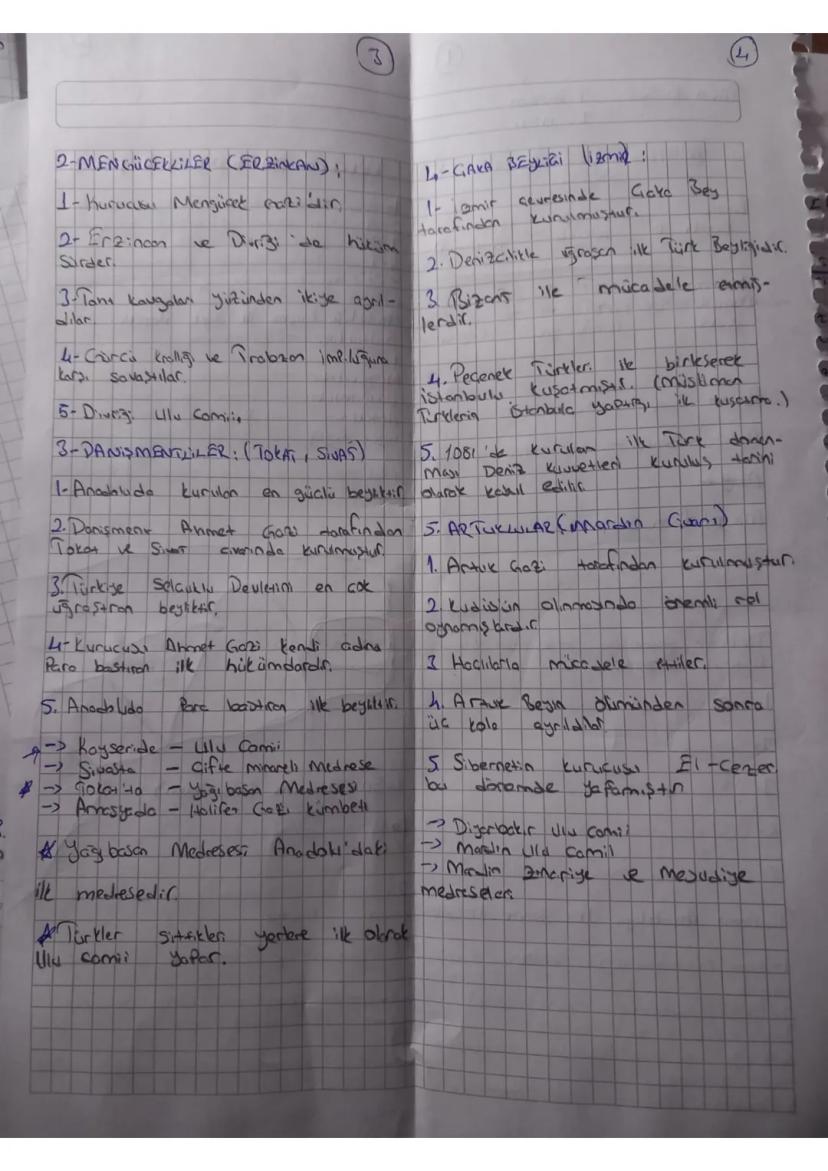 3
2-MENGÜCEKLİLER (ERZİNKAN);
1-Kurucusu Mengücek Gazi'dir.
2- Erzincan ve Divriği'de hüküm
sürder.
3-Taht kavgaları yüzünden ikiye ayrıl-
dılar.
4-Gürcü krallığı ve Trabzon imp.luğuna
karşı savaştılar.
5- Divriği Ulu Camii.
3-DANİŞMENTLİLER: (TOKAT, SİVAS)
1-Anadoluda kurulan en güçlü beyliktir
2. Danişment Ahmet Gazi tarafından
Tokat ve Sivas civarında kurulmuştur.
3.Türkiye Selçuklu Devletini en çok
uğraştıran beyliktir.
4-Kurucusu Ahmet Gazi kendi adına
Para bastıran ilk hükümdardır.
5. Anadoluda Para bastıran ilk beyliktir.
-> Kayseride - Ulu Camii
-> Sivasta - Çifte minareli Medrese
-> Tokat'ta - Yağıbasan Medresesi
-> Amasyada - Halifet Gazi kümbeti
* Yağıbasan Medresesi Anadolu'daki
ilk medresedir.
* Türkler yerlere ilk olarak
Ulu camii yapar.
4
4-ÇAKA BEYLİĞİ (izmir) :
1- izmir çevresinde Çaka Bey
tarafından kurulmuştur.
2. Denizcilikle uğraşan ilk Türk Beyliğidir.
3. Bizans ile mücadele etmiş-
lerdir.
4. Peçenek Türkleri ile birleşerek
istanbulu kuşatmıştır. (müslüman
Türklerin istanbula yaptığı ilk kuşatma.)
5. 1081'de kurulan ilk Türk donan-
ması Deniz kuvvetleri kuruluş tarihi
olarak kabul edilir.
5. ARTUKLULAR (mardin Civarı)
1. Artuk Gazi tarafından kurulmuştur.
2. Kudüsün alınmasında önemli rol
oynamışlardır.
3 Haçlılarla mücadele ettiler.
4. Artuk Beyin ölümünden sonra
üç kola ayrıldılar
5 Sibernetin kurucusu El-Cezeri
bu dönemde yaşamıştır
-> Diyarbakır Ulu camii
-> Mardin Ulu Camii
-> Mardin zinciriye ve Mesudiye
medreseleri